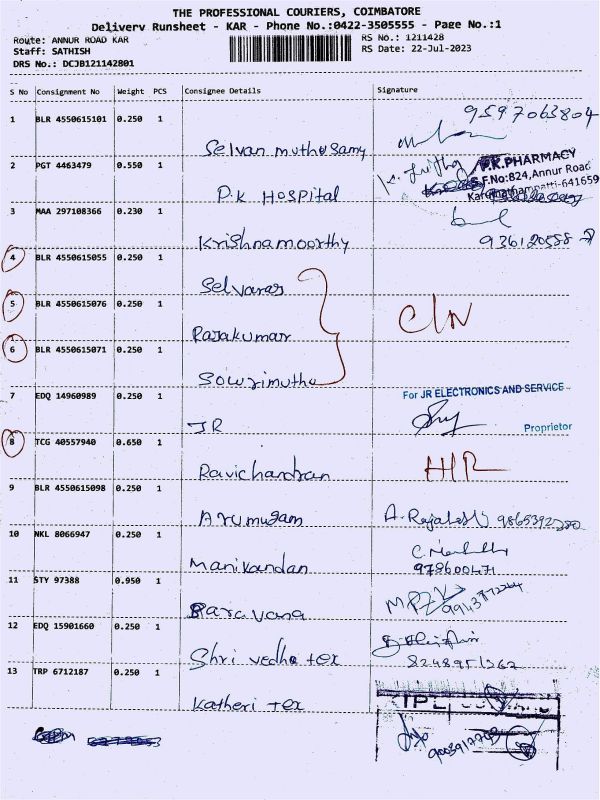 THE PROFESSIONAL COURIERS, COIMBATORE
Delivery Runsheet - KAR - Phone No.:0422-3505555 - Page No.:1
Route: ANNUR ROAD KAR
RS No.: 1211428
Staff: SATHISH
RS Date: 22-Jul-2023
DRS No.: DCJB121142801
S No Consignment No Weight PCS Consignee Details Signature
1 BLR 4550615101 0.250 1 Selvan muthusamy 9597063804
2 PGT 4463479 0.550 1 P.K HOSPITAL
P.K.PHARMACY
S.F.No:824,Annur Road
3 MAA 297108366 0.230 1 Krishnamoorthy
4 BLR 4550615055 0.250 1 Selvaraj
5 BLR 4550615076 0.250 1 Rajakumar C/N
6 BLR 4550615071 0.250 1 Sowrimuthu
7 EDQ 14960989 0.250 1 JR
For JR ELECTRONICS AND SERVICE
Proprietor
8 TCG 40557940 0.650 1 Ravichandran H/R
9 BLR 4550615098 0.250 1 Arumugam
10 NKL 8066947 0.250 1 Manikandan
11 STY 97388 0.950 1 Saravana
12 EDQ 15901660 0.250 1 Shri vedha tex
13 TRP 6712187 0.250 1 Katheri tex